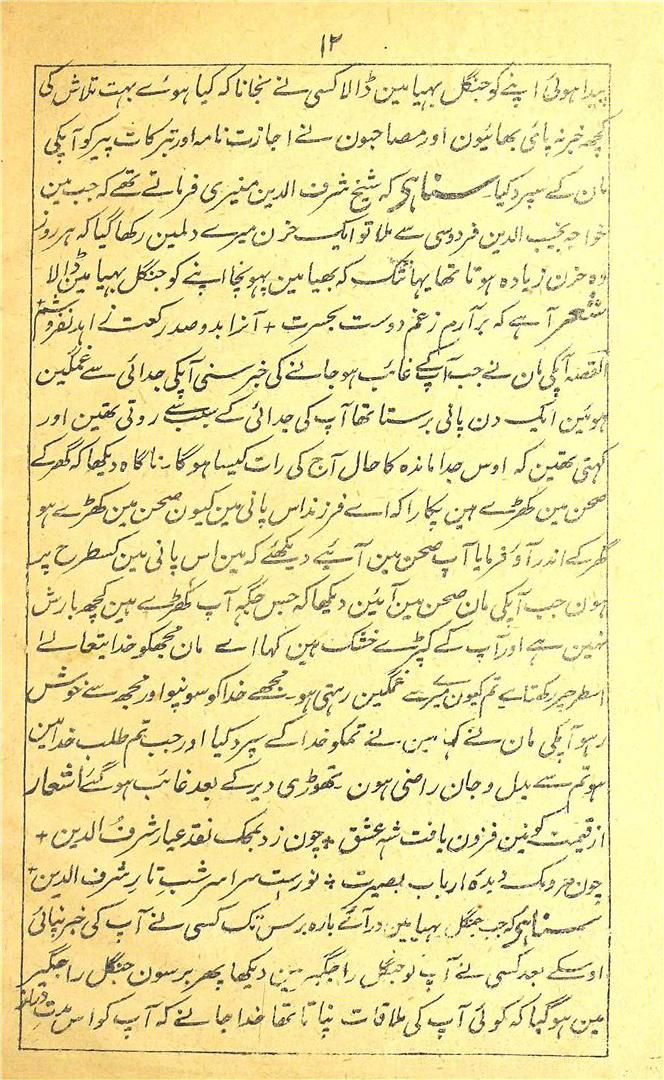 ۱۲
پیدا ہوئی اپنے کو جنگل بہیا مین ڈالا کسی نے نجانا کہ کیا ہوے بہت تلاش کی
کچھ خبر نہ پائی بھائیون اور مصاحبون نے اجازت نامہ اور تبرکات پیر کو آپکی
مان کے سپرد کیا۔ سناہی کہ شیخ شرف الدین منیری فرماتے تھے کہ جب مین
خواجہ نجیب الدین فردوسی سے ملا تو ایک حزن میرے دلمین رکھا گیا کہ ہر روز
وہ حزن زیادہ ہوتا تھا یہانتک کہ بھیا مین پہونچا اپنے کو جنگل بہیا مین ڈالا
شعر آہے کہ برآرم ز غم دوست بحسرت + آنرا بدو صد رکعت زاہد نفروشم +
القصہ آپکی مان نے جب آپکے غایب ہو جانے کی خبر سنی آپکی جدائی سے غمگین
ہوئین ایک دن پانی برستا تھا آپ کی جدائی کے سبب سے روتی تھین اور
کہتی تھین کہ اوس جدا ماندہ کا حال آج کی رات کیسا ہوگا۔ ناگاہ دیکھا کہ گھر کے
صحن مین کھڑے ہین پکارا کہ اے فرزند اس پانی مین کیون صحن مین کھڑے ہو
گھر کے اندر آؤ فرمایا آپ صحن مین آئیے دیکھئے کہ مین اس پانی مین کسطرح پر
ہون جب آپکی مان صحن مین آئین دیکھا کہ جس جگہہ آپ کھڑے ہین کچھ بارش
نہین ہے اور آپ کے کپڑے خشک ہین کہا اے مان مجھکو خدایتعالے
اسطرحپر رکھتا ہے تم کیون میرے سے غمگین رہتی ہو۔ مجھے خدا کو سونپو اور مجھ سے خوش
رہو آپکی مان نے کہا مین نے تمکو خدا کے سپرد کیا اور جب تم طلب خدا مین
ہو تم سے بدل و جان راضی ہون۔ تھوڑی دیر کے بعد غائب ہوگئے اشعار
از قیمت کونین فزون یافت شہ عشق + چون زد بمحک نقد عیار شرف الدین +
چون مردمک دیدہ ارباب بصیرت + نورست سراسر شب تار شرف الدین +
سناہی کہ جب جنگل بہیا مین در آئے بارہ برس تک کسی نے آپ کی خبر نپائی
اوسکے بعد کسی نے آپ کو جنگل راجگیر مین دیکھا پھر برسون جنگل راجگیر
مین ہو گیا کہ کوئی آپ کی ملاقات نپاتا تھا خدا جانے کہ آپ کو اس مدت دراز